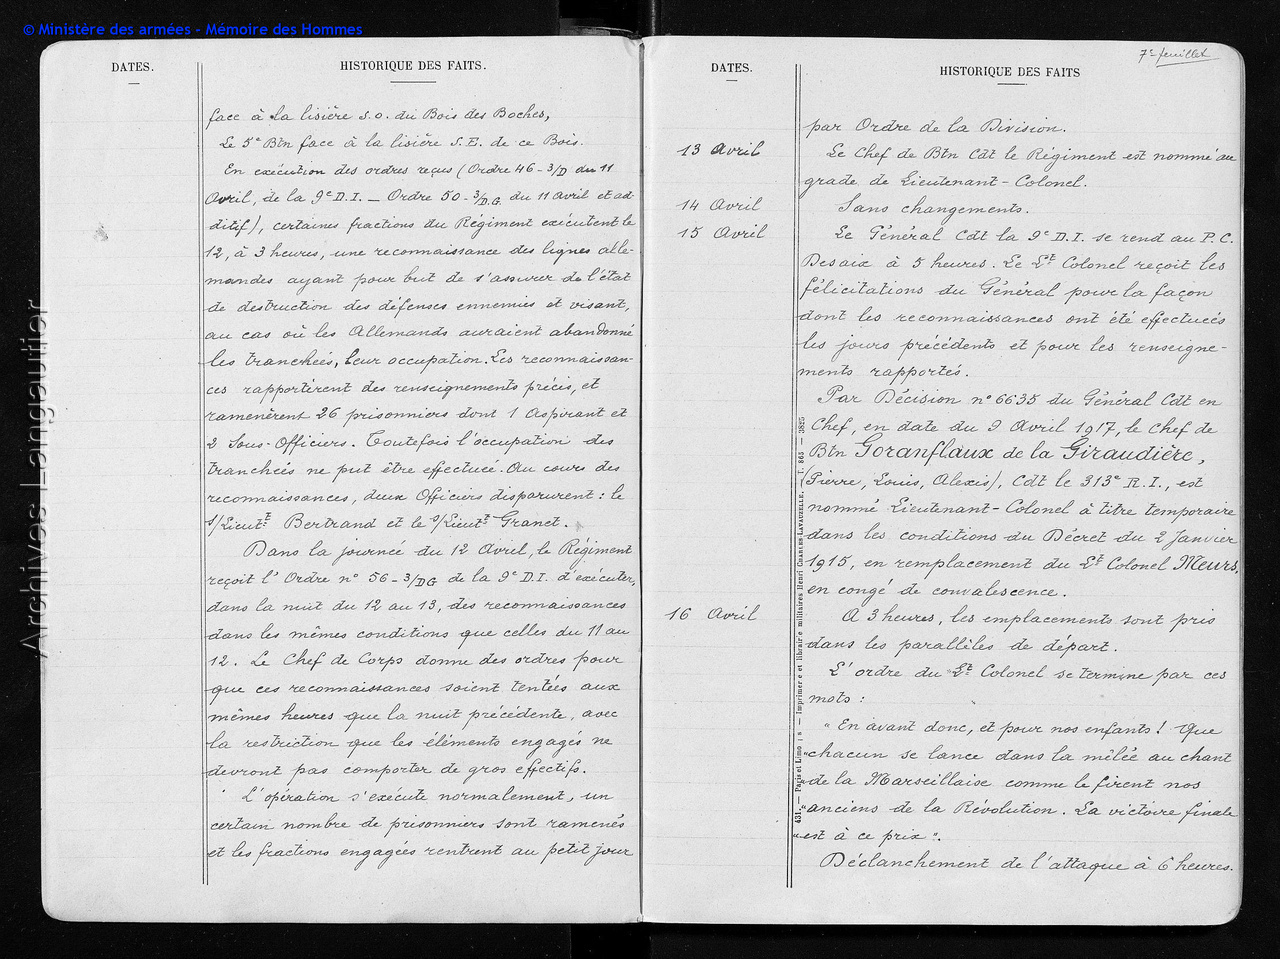 © Ministère des armées - Mémoire des Hommes
Archives Langautier
DATES.
HISTORIQUE DES FAITS.
face à la lisière S.O. du Bois des Boches,
Le 5e Btn face à la lisière S.E. de ce Bois.
En exécution des ordres reçus (Ordre 46 - 3/D du 11
Avril, de la 9e D.I. — Ordre 50 - 3/DG du 11 Avril et ad-
ditif), certaines fractions du Régiment exécutent le
12, à 3 heures, une reconnaissance des lignes alle-
mandes ayant pour but de s'assurer de l'état
de destruction des défenses ennemies et visant,
au cas où les Allemands auraient abandonné
les tranchées, leur occupation. Les reconnaissan-
ces rapportèrent des renseignements précis, et
ramenèrent 26 prisonniers dont 1 Aspirant et
2 Sous-Officiers. Toutefois l'occupation des
tranchées ne put être effectuée. Au cours des
reconnaissances, deux Officiers disparurent : le
s/Lieutt Bertrand et le s/Lieutt Granet.
Dans la journée du 12 Avril, le Régiment
reçoit l'Ordre n° 56 - 3/DG de la 9e D.I. d'exécuter,
dans la nuit du 12 au 13, des reconnaissances
dans les mêmes conditions que celles du 11 au
12. Le Chef de Corps donne des ordres pour
que ces reconnaissances soient tentées aux
mêmes heures que la nuit précédente, avec
la restriction que les éléments engagés ne
devront pas comporter de gros effectifs.
L'opération s'exécute normalement, un
certain nombre de prisonniers sont ramenés
et les fractions engagées rentrent au petit jour
7e feuillet
DATES.
HISTORIQUE DES FAITS
par Ordre de la Division.
13 Avril
Le Chef de Btn Cdt le Régiment est nommé au
grade de Lieutenant-Colonel.
14 Avril
Sans changements.
15 Avril
Le Général Cdt la 9e D.I. se rend au P.C.
Desaix à 5 heures. Le Lt Colonel reçoit les
félicitations du Général pour la façon
dont les reconnaissances ont été effectuées
les jours précédents et pour les renseigne-
ments rapportés.
Par Décision n° 6635 du Général Cdt en
Chef, en date du 9 Avril 1917, le Chef de
Btn Goranflaux de la Giraudière,
(Pierre, Louis, Alexis), Cdt le 313e R.I., est
nommé Lieutenant-Colonel à titre temporaire
dans les conditions du Décret du 2 Janvier
1915, en remplacement du Lt Colonel Meurs,
en congé de convalescence.
16 Avril
A 3 heures, les emplacements sont pris
dans les parallèles de départ.
L'ordre du Lt Colonel se termine par ces
mots :
" En avant donc, et pour nos enfants ! Que
" chacun se lance dans la mêlée au chant
" de la Marseillaise comme le firent nos
" anciens de la Révolution. La victoire finale
" est à ce prix ".
Déclanchement de l'attaque à 6 heures.
431. — Paris et Limoges — Imprimerie et librairie militaires Henri CHARLES-LAVAUZELLE. T. 865 — 3825